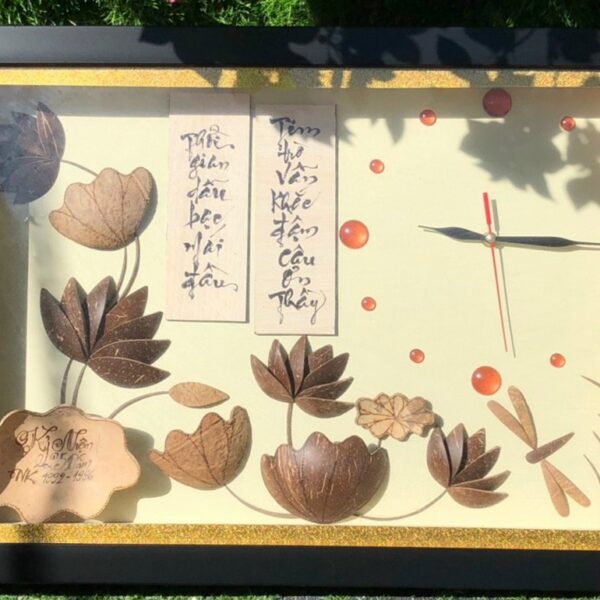 Thời
gian
dẫu
bạc
mái
đầu
Tim
trò
vẫn
khắc
đậm
câu
ơn
Thầy
Kỷ Niệm
1992 - 1996